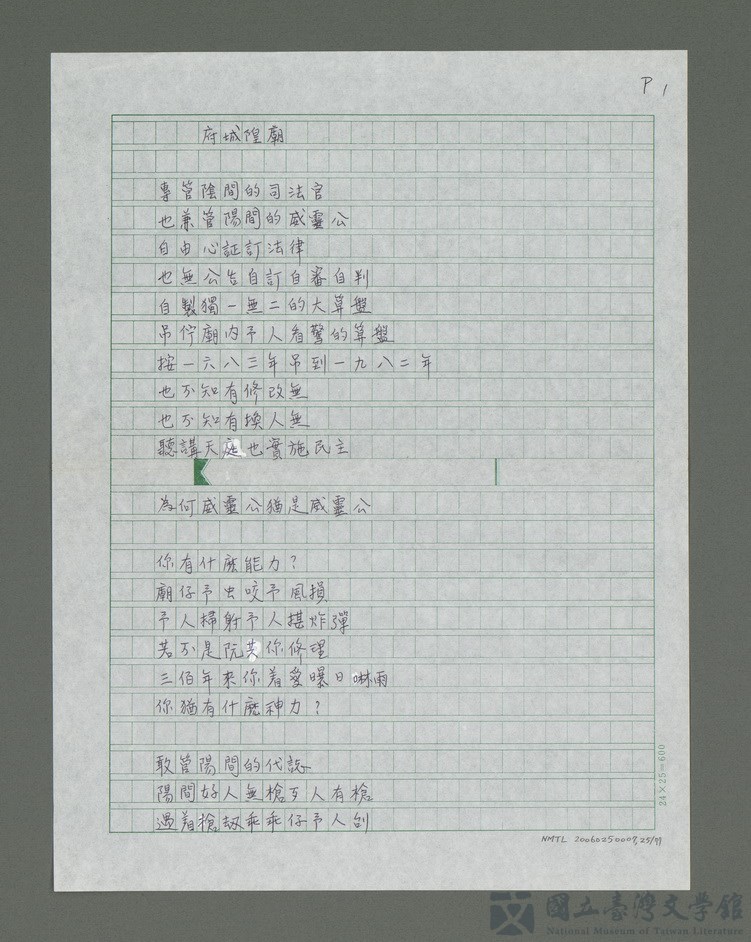 P1
府城隍廟
專管陰間的司法官
也兼管陽間的威靈公
自由心証訂法律
也無公告自訂自審自判
自製獨一無二的大算盤
吊佇廟內予人看驚的算盤
按一六八三年吊到一九八二年
也不知有修改無
也不知有換人無
聽講天庭也實施民主
為何威靈公猶是威靈公
你有什麼能力?
廟仔予虫咬予風損
予人掃射予人搭炸彈
若不是阮共你修理
三佰年來你着愛曝日啉雨
你猶有什麼神力?
敢管陽間的代誌
陽間好人無槍歹人有槍
遇着槍劫乖乖仔予人刣
24×25=600
NMTL 20060250009,25/77
國立臺灣文學館
National Museum of Taiwan Literature